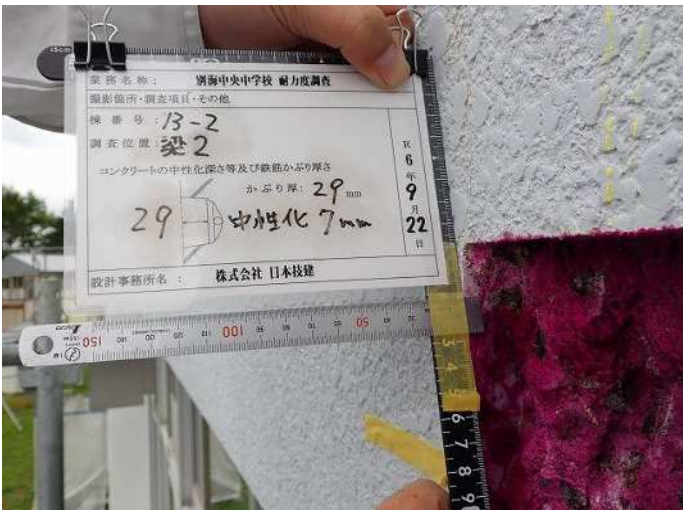 15cm
業務名称： 別海中央中学校 耐力度調査
撮影箇所・調査項目・その他
棟番号：13-2
調査位置：梁2
コンクリートの中性化深さ等及び鉄筋かぶり厚さ
かぶり厚：29mm
29 中性化 7mm
R6年9月22日
設計事務所名： 株式会社 日本技建
150 100 50
3 4 5 6 7 8 9